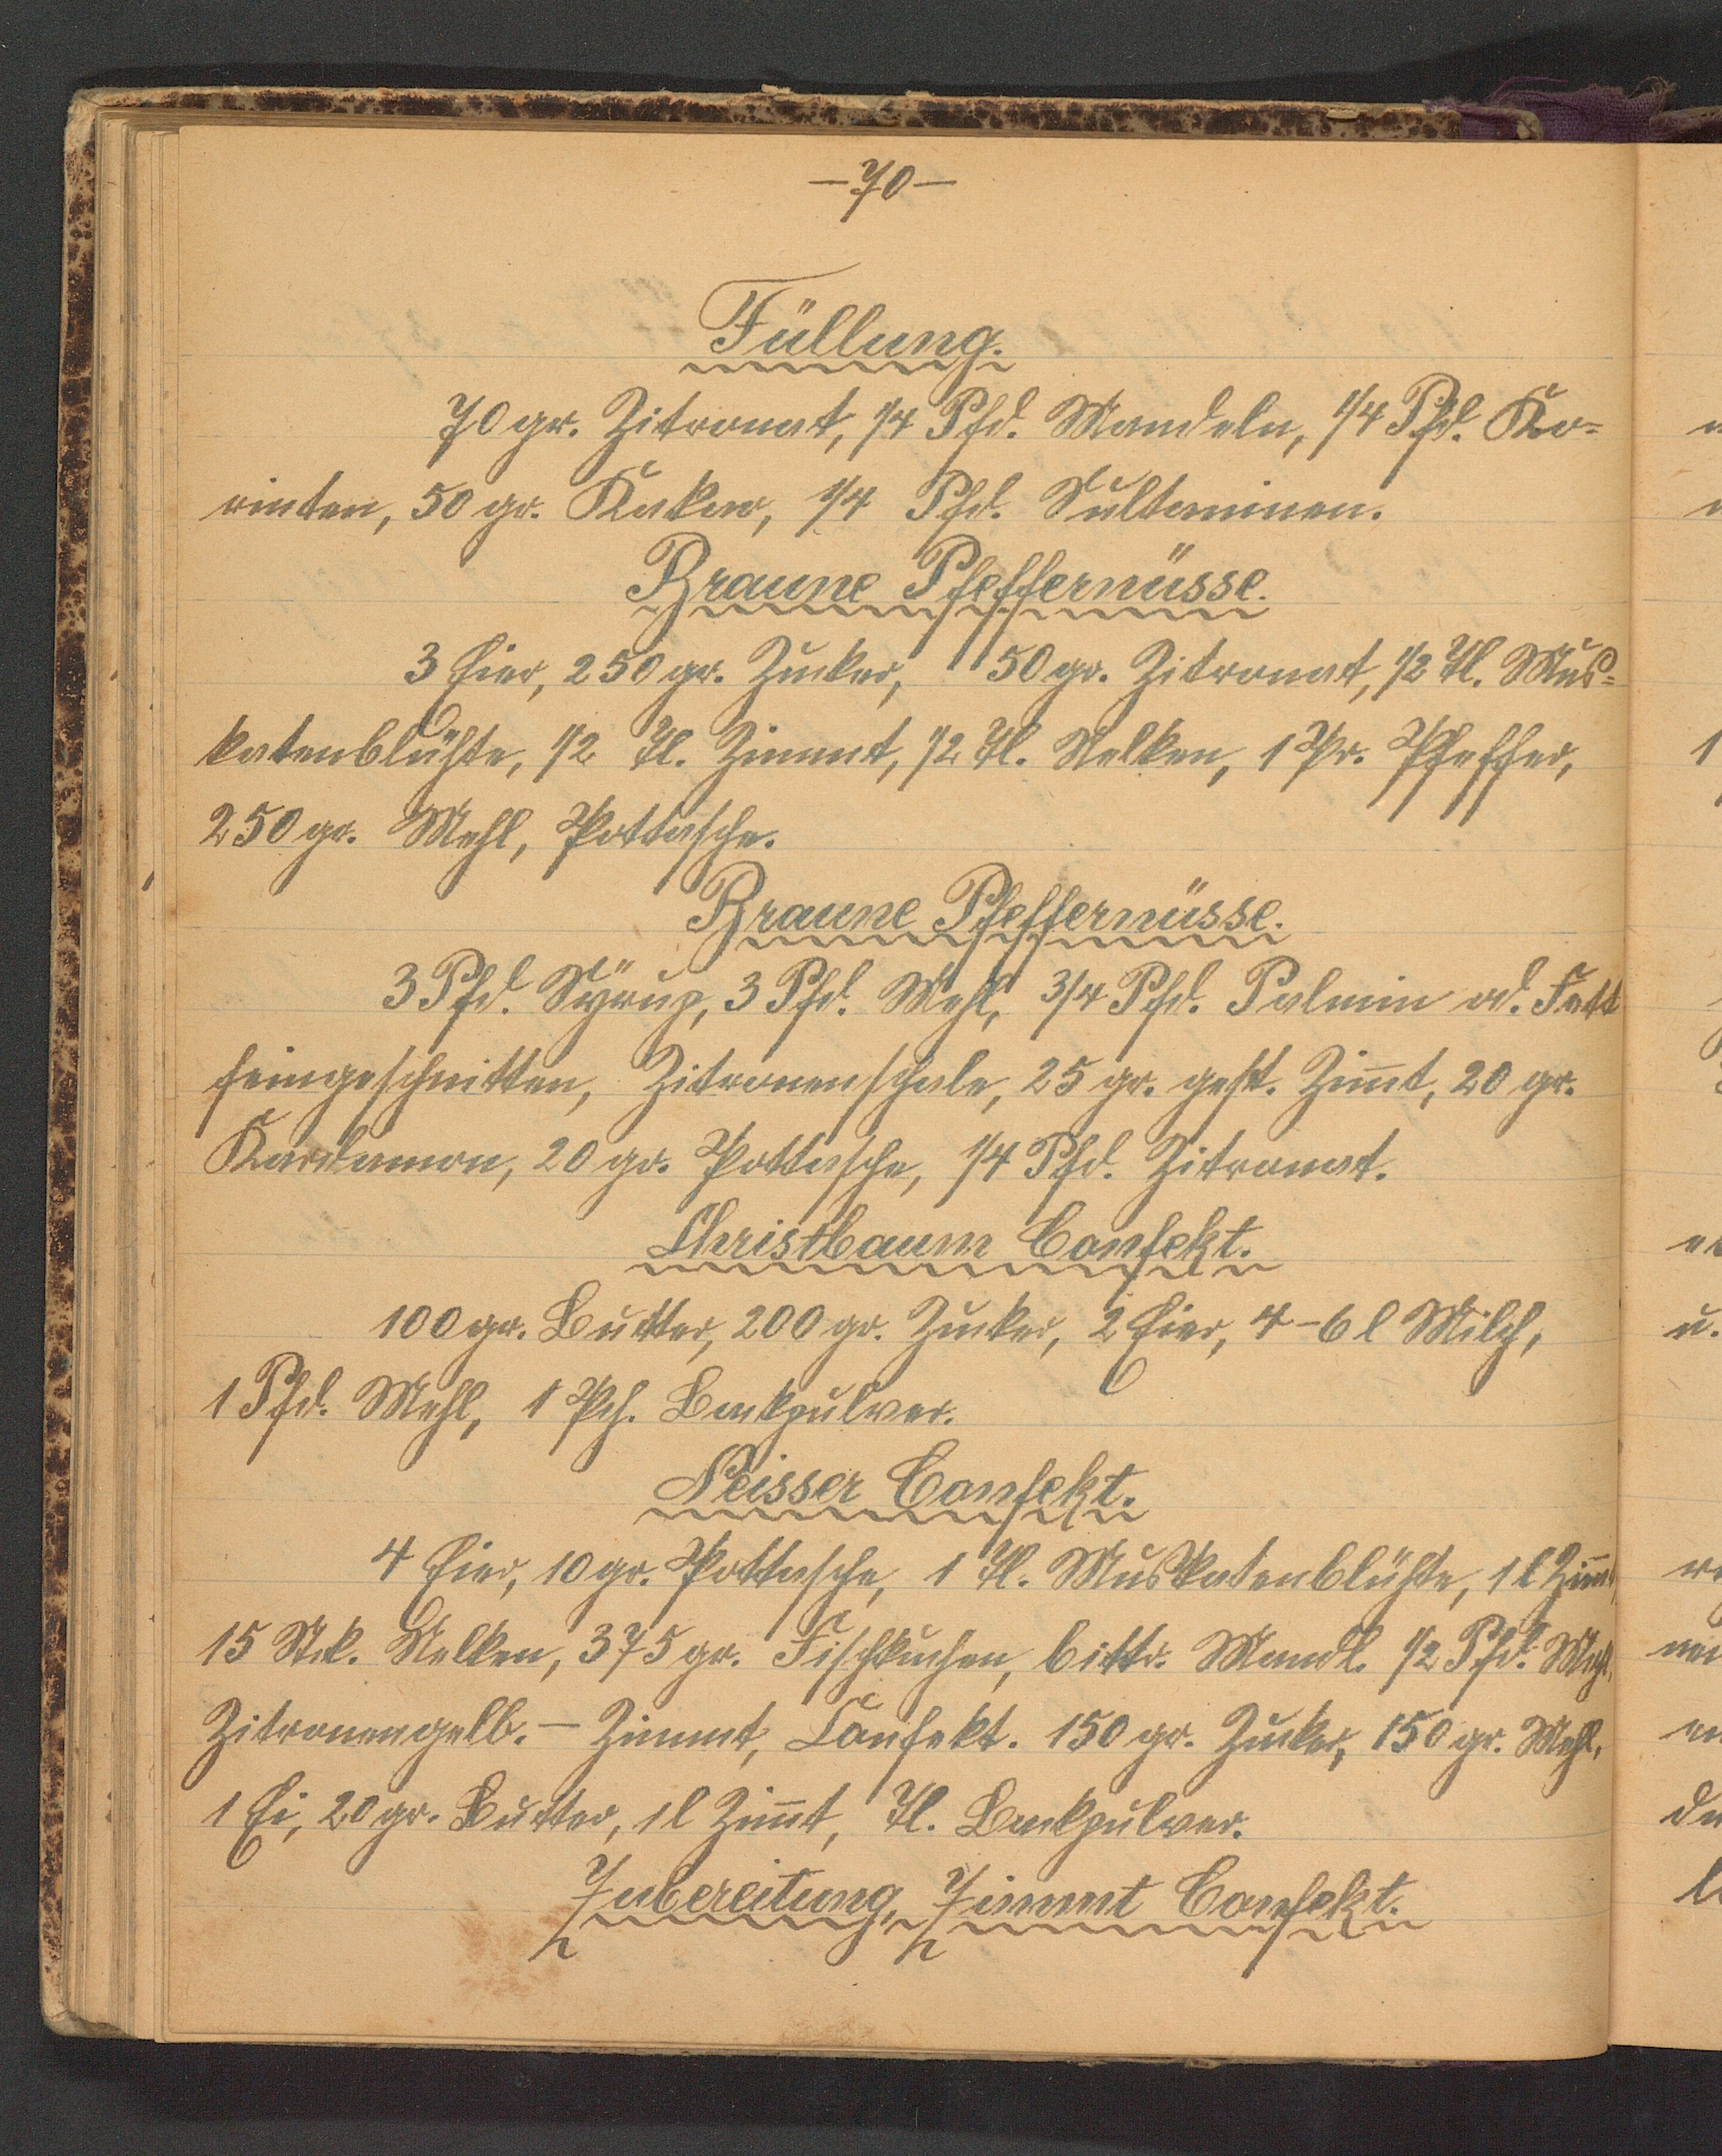 —70—
Füllung.
70 gr. Zitronat, 1/4 Pfd. Mandeln, 1/4 Pfd. Ko=
rinten, 50 gr. Kakao, 1/4 Pfd. Sultaninen.
Braune Pfeffernüsse.
3 Eier, 250 gr. Zucker, 50 gr. Zitronat, 1/2 Tl. Mus=
katenblühte, 1/2 Tl. Zimmt, 1/2 Tl. Nelken, 1 Pr. Pfeffer,
250 gr. Mehl, Pottasche.
Braune Pfeffernüsse.
3 Pfd. Syrup, 3 Pfd. Mehl, 3/4 Pfd. Palmin od. Fett
feingeschnitten, Zitronenschale, 25 gr. gest. Zimt, 20 gr.
Kardamon, 20 gr. Pottasche, 1/4 Pfd. Zitronat.
Christbaum Confekt.
100 gr. Butter, 200 gr. Zucker, 2 Eier, 4–6 l Milch,
1 Pfd. Mehl, 1 Pch. Backpulver.
Neisser Confekt.
4 Eier, 10 gr. Pottasche, 1 Tl. Muskatenblühte, 1 l Zimt
15 Stck. Nelken, 375 gr. Fischkuchen, bittr. Mandl. 1/2 Pfd. Mehl,
Zitronengelb. — Zimmt, Confekt. 150 gr. Zucker, 150 gr. Mehl,
1 Ei, 20 gr. Butter, 1 l Zimt, Tl. Backpulver.
Zubereitung, Zimmt Confekt.